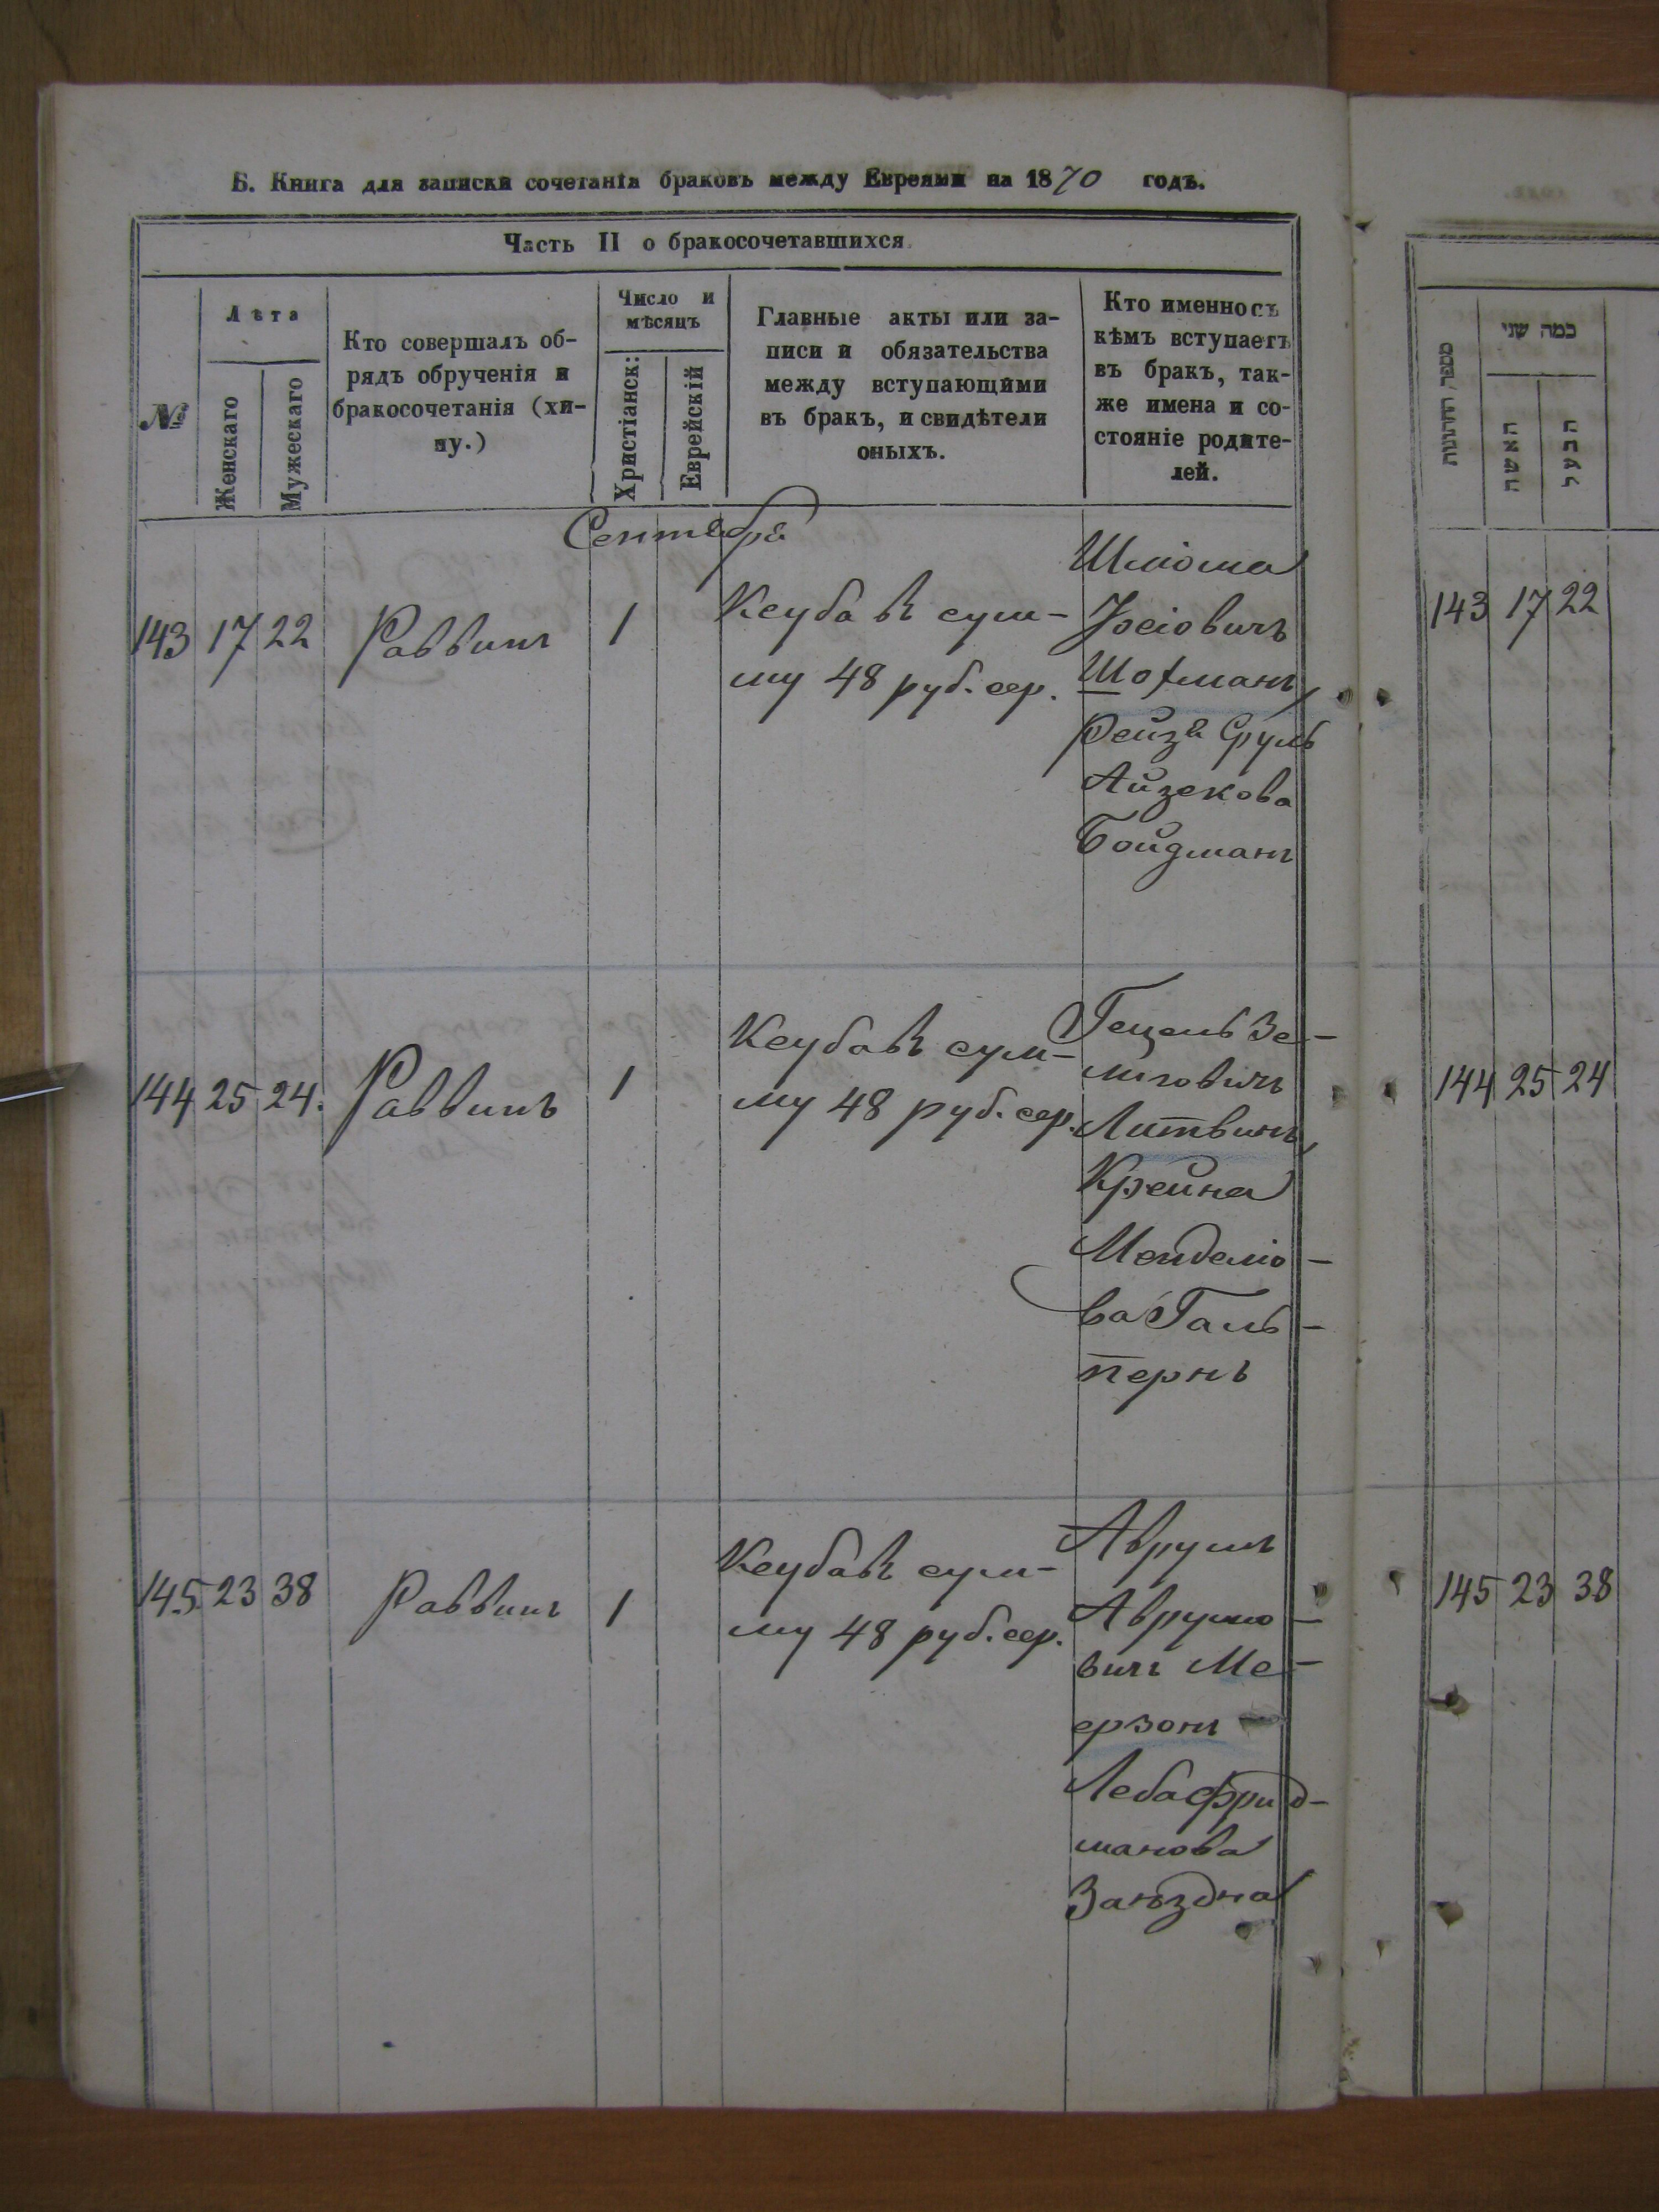 Б. Книга для записки сочетанія браковъ между Евреями на 1870 годъ.
Часть II о бракосочетавшихся.
№
Лѣта
Женскаго
Мужескаго
Кто совершалъ об-
рядъ обрученія и
бракосочетанія (хи-
пу.)
Число и
мѣсяцъ
Христіанск:
Еврейскій
Главные акты или за-
писи и обязательства
между вступающими
въ бракъ, и свидѣтели
оныхъ.
Кто именно съ
кѣмъ вступаетъ
въ бракъ, так-
же имена и со-
стояніе родите-
лей.
Сентября
143 17 22 Раввинъ 1
Кеуба въ сум-
му 48 руб. сер.
Шлiома
Іосіовичъ
Шохманъ
Рейзя Сруль
Айзекова
Бойдманъ
144 25 24. Раввинъ 1
Кеуба въ сум-
му 48 руб. сер.
Гецель Зе-
лиговичъ
Литвинъ
Крейна
Менделіо-
ва Галь-
пернъ
145 23 38 Раввинъ 1
Кеуба въ сум-
му 48 руб. сер.
Аврумъ
Аврумо-
вичъ Ме-
ерзонъ
Леба Фрид-
манова
Заѣздна
מספר החתונות
כמה שני
האשה
הבעל
143 17 22
144 25 24
145 23 38